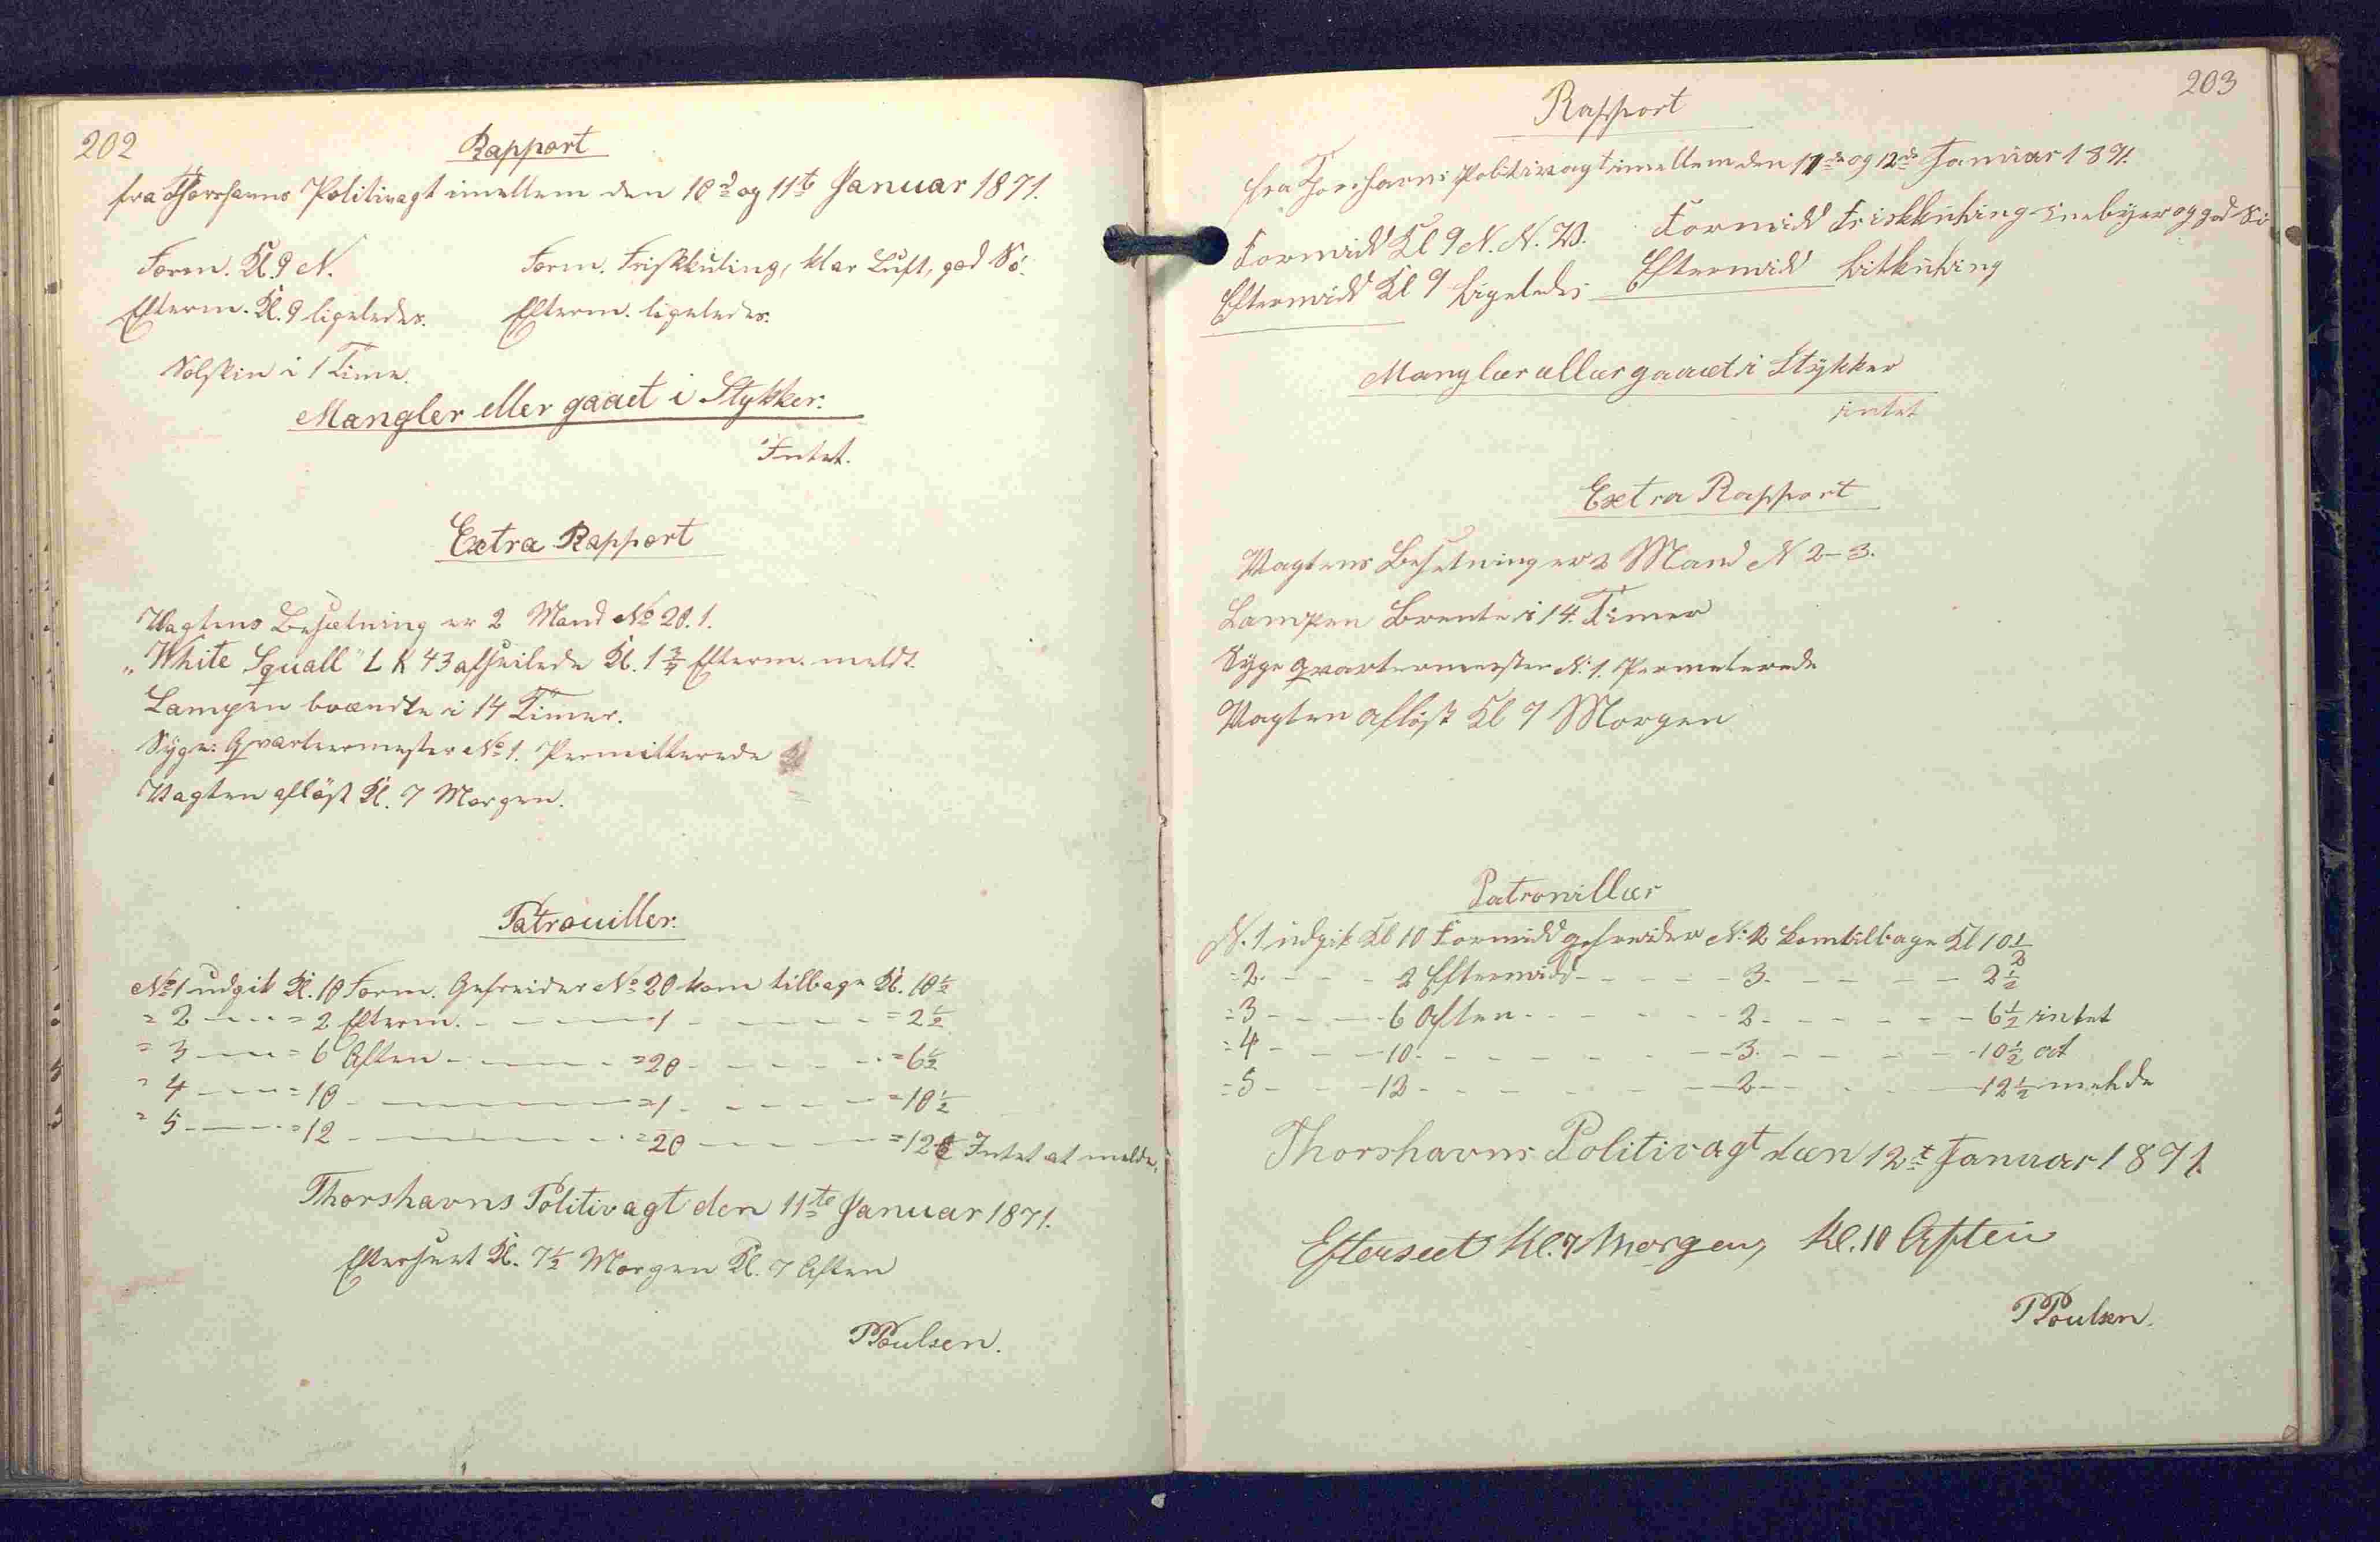 202
Rapport
fra Thorshavns Politivagt imellem den 10d og 11te Januar 1871.
Form. Kl. 9 N. Form. Friskkuling, klar Luft, god Sö.
Efterm. Kl. 9 ligeledes. Efterm. ligeledes.
Solskin i 1 Time.
Mangler eller gaaet i Stykker.
Intet.
Extra Rapport
Vagtens Besætning er 2 Mand No 20. 1.
"White Squall" L K 43 afseilede Kl. 1 3/4 Efterm. meldt.
Lampen brændte i 14 Timer.
Syge: Qvarteermester No 1. Permitterede
Vagten aflöst Kl. 7 Morgen.
Patrouiller.
No 1 udgik Kl. 10 Form. Gefreider No 20 kom tilbage Kl. 10 1/2
= 2 - - - = 2 Efterm. - - - 1 - - - = 2 1/2
= 3 - - - = 6 Aften - - - = 20 - - - = 6 1/2
= 4 - - - = 10 - - - = 1 - - - = 10 1/2
= 5 - - - = 12 - - - = 20 - - - = 12 1/2 Intet at melde.
Thorshavns Politivagt den 11te Januar 1871.
Efterseet Kl. 7 1/2 Morgen Kl. 7 Aften
PPoulsen.
203
Rapport
fra Torshavns Politivagt imellem den 11te og 12te Januar 1871.
Formidd Kl 9 N. N. W. Formidd Friskkuling snebyer og god Sö
Eftermidd Kl 9 Ligeledes Eftermidd Litkuling
Manglær ællær gaaet i Stykker
intet
Extra Rapport
Vagtens Besetning er 2 Mand N 2-3.
Lampen Brente i 14. Timer
Syge Qvartermester N: 1. Permeterede
Vagten aflöst Kl 7 Morgen
Patrouillær
N. 1 udgik Kl 10 Formidd gefreider N: 2 komtilbage Kl 10 1/2
= 2. - - - 2 Eftermidd - - - 3. - - - 2 1/2
= 3 - - - 6 Aften - - - 2 - - - 6 1/2 intet
= 4 - - - 10 - - - 3. - - - 10 1/2 at
= 5 - - - 12 - - - 2 - - - 12 1/2 melde
Thorshavns Politivagt dæn 12t Januar 1871.
Efterseet Kl. 7 Morgen, Kl. 10 Aften
PPoulsen.